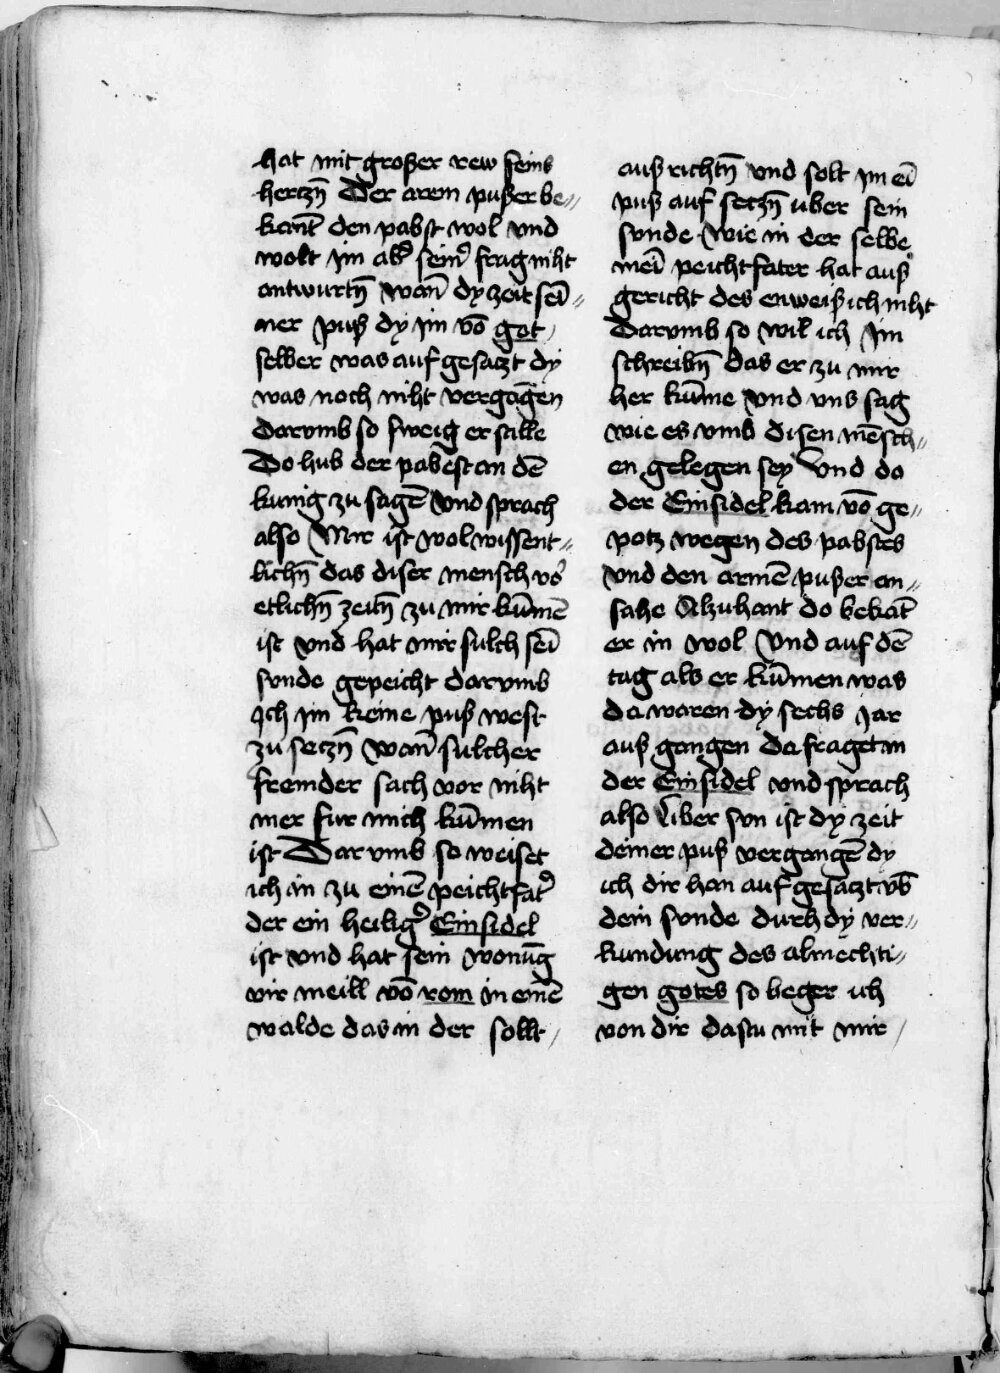 hat mit großer rew seins
hertzn̄ Der arem pußer be〃
kant̄ den pabst wol vnd
wolt im ab̾ sein̾ frag niht
antwurtn̄ wan̄ dy zeit sei̅〃
ner puß dy im vo̅ got /
selber was auf gesaczt dy
was noch niht vergāgen
darvmb so sweig er stille
Do hub der pabest an de̅
kunig zu sage̅ vnd sprach
also Mir ist wol wissent〃
lichn̄ das diser mensch vo̾
etlichn̄ zeitn̄ zu mir ku̅me̅
ist vnd hat mir sulch sei̅
sunde gepeicht darvmb
Ich im keine puß west
zu seczn̄ wan̄ sulcher
fremder sach vor niht
mer fur mich ku̅men
ist Darvmb so weiset
ich in zu eine̅ peichtfat̾
der ein heilig̾ Einsidel
ist vnd hat sein wonu̅g
vir meill vo̅ rom in eine̅
walde das in der sollt /
auß richtn̄ vnd solt im ei̅
puß auf seczn̄ uber sein
sunde Wie in der selbe
mei̅ peichtfater hat auß
gericht des enweiß ich niht
Darvmb so wil ich Im
schreibn̄ das er zu mir
her ku̅me vnd vns sag
wie es vmb disen me̅sch〃
en gelegen sey Vnd do
der Einsidel kam vo̅ ge〃
potz wegen des pabstes
vnd den arme̅ pußer an〃
sahe Alzuhant do bekāt
er in wol Vnd auf de̅
tag als er ku̅men was
da waren dy sechs Jar
auß gangen da fraget in
der Einsidel vnd sprach
also Liber sun ist dy zeit
deiner puß vergange̅ dy
ich dir han auf gesaczt vb̾
dein sunde durh dy ver〃
kundung des almechti〃
gen gotes so beger ich
von dir dastu mit mir /